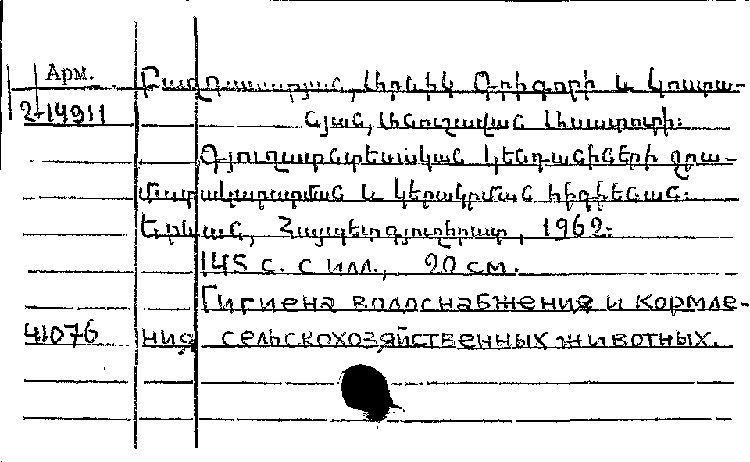 Арм.
Բաղդասարյան, Արնիկ Գրիգորի և Կոստա-
2-14911
նյան, Անուշավան Ասատուրի:
Գյուղատնտեսական կենդանիների ջրա-
մատակարարման և կերակրման հիգիենան:
Երևան, Հայպետգյուղհրատ, 1962:
145 с. с илл., 20 см.
Гигиена водоснабжения и кормле-
41076 ния сельскохозяйственных животных.